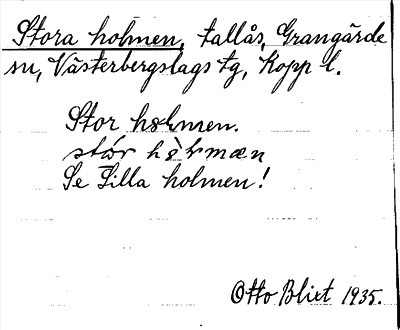 Stora holmen, tallås, Grangärde
sn, Västerbergslags tg, Kopp l.
Stor holmen.
stór hòlmæn
Se Lilla holmen!
Otto Blixt 1935.